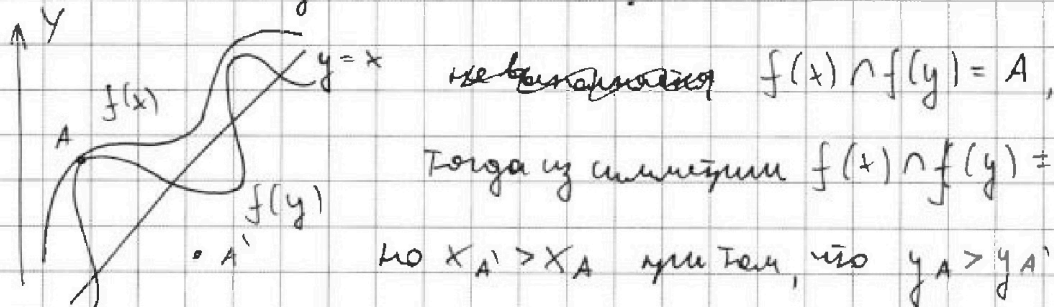 Y
y = x
f(x)
A
f(y)
A'
f(x) ∩ f(y) = A,
Тогда из симметрии f(x) ∩ f(y) =
но x_A' > x_A при том, что y_A > y_A'